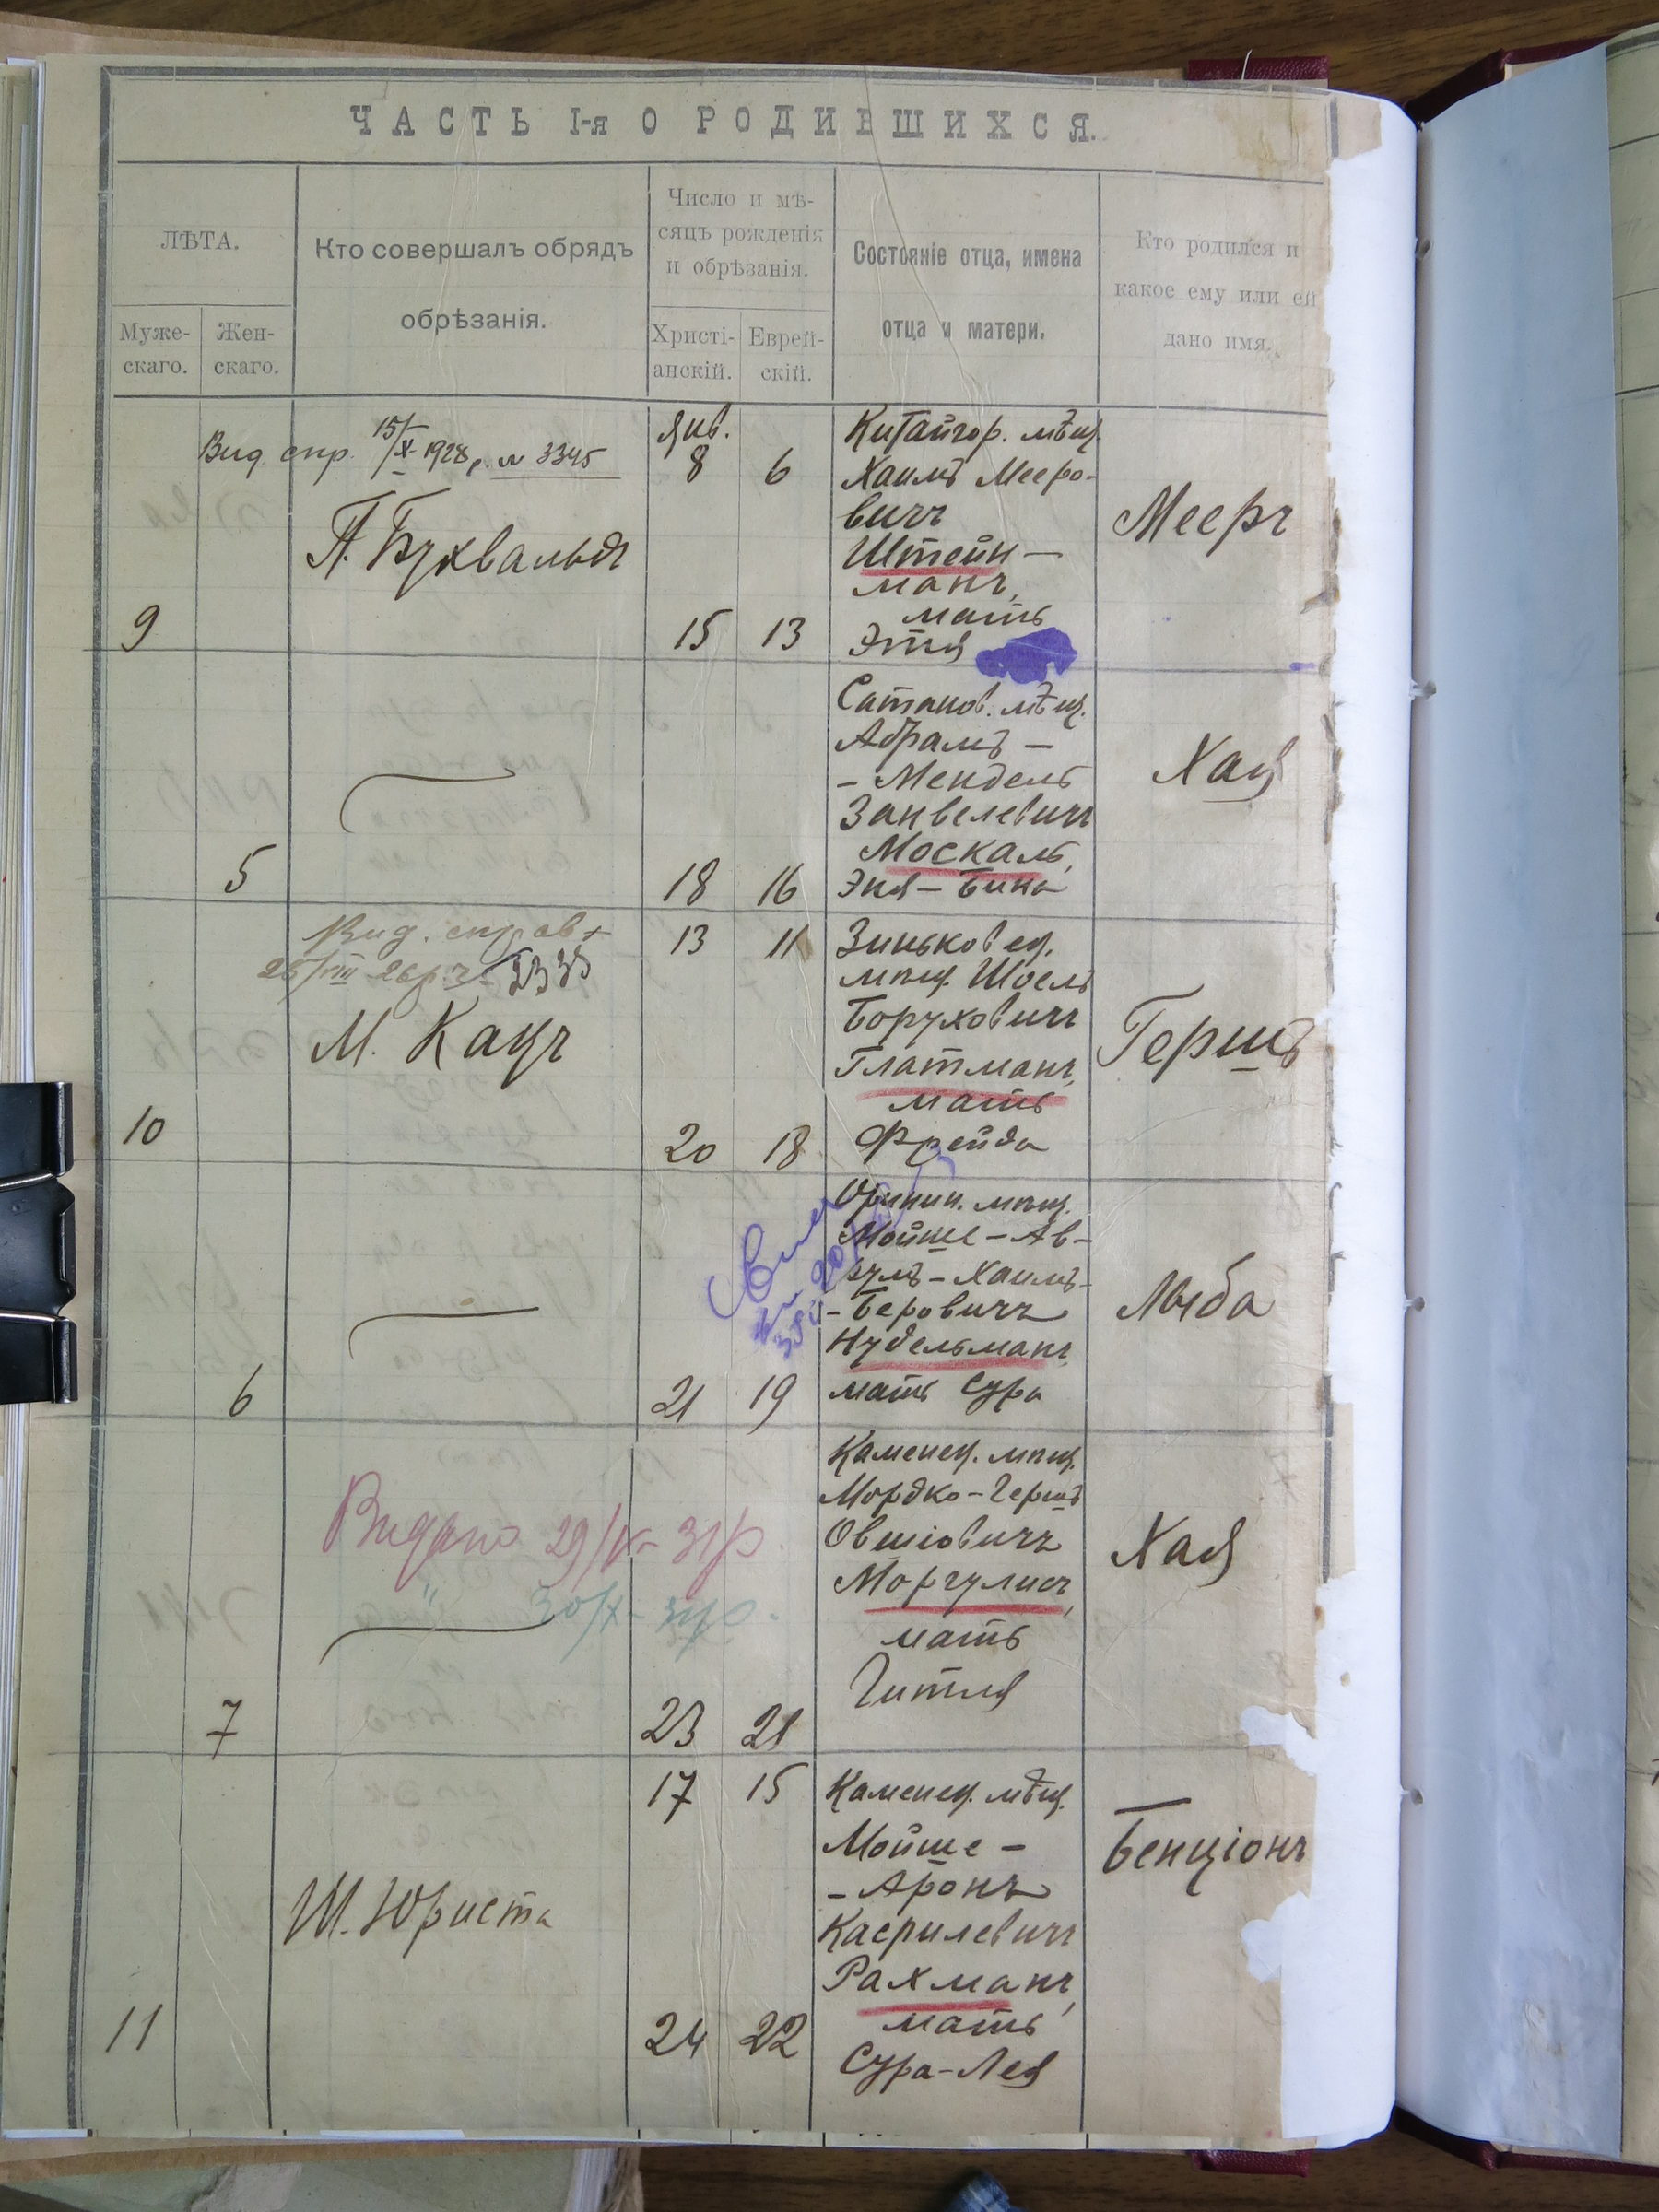 ЧАСТЬ I-я О РОДИВШИХСЯ.
ЛѢТА.
Муже-
скаго.
Жен-
скаго.
Кто совершалъ обрядъ
обрѣзанія.
Число и мѣ-
сяцъ рожденія
и обрѣзанія.
Христі-
анскій.
Еврей-
скій.
Состояніе отца, имена
отца и матери.
Кто родился и
какое ему или ей
дано имя.
Вид спр. 15/X 1928 р. № 3345
П. Буквальдъ
9
Янв.
8 6
15 13
Китайгор. мѣщ.
Хаимъ Мееро-
вичъ
Штейн-
манъ,
мать
Этя
Мееръ
5
18 16
Сатанов. мѣщ.
Абрамъ -
- Мендель
Занвелевичъ
Москаль,
Эня - Бина
Хая
Вид. справ
26/VIII 26 р.
М. Кацъ
10
13 11
20 18
Зиньковец.
мѣщ. Шоель
Боруховичъ
Глатманъ,
мать
Фрейда
Гершъ
6
21 19
Оринин. мѣщ.
Мойше - Ав-
румъ - Хаимъ-
- Беровичъ
Нудельманъ,
мать Сура
Люба
Видано 29/V - 31 р.
" 30/X - 31 р.
7
23 21
Каменец. мѣщ.
Мордко - Гершъ
Овшіовичъ
Моргулисъ,
мать
Гитля
Хая
Ш. Юриста
11
17 15
24 22
Каменец. мѣщ.
Мойше -
- Аронъ
Касрилевичъ
Рахманъ,
мать
Сура-Лея
Бенціонъ